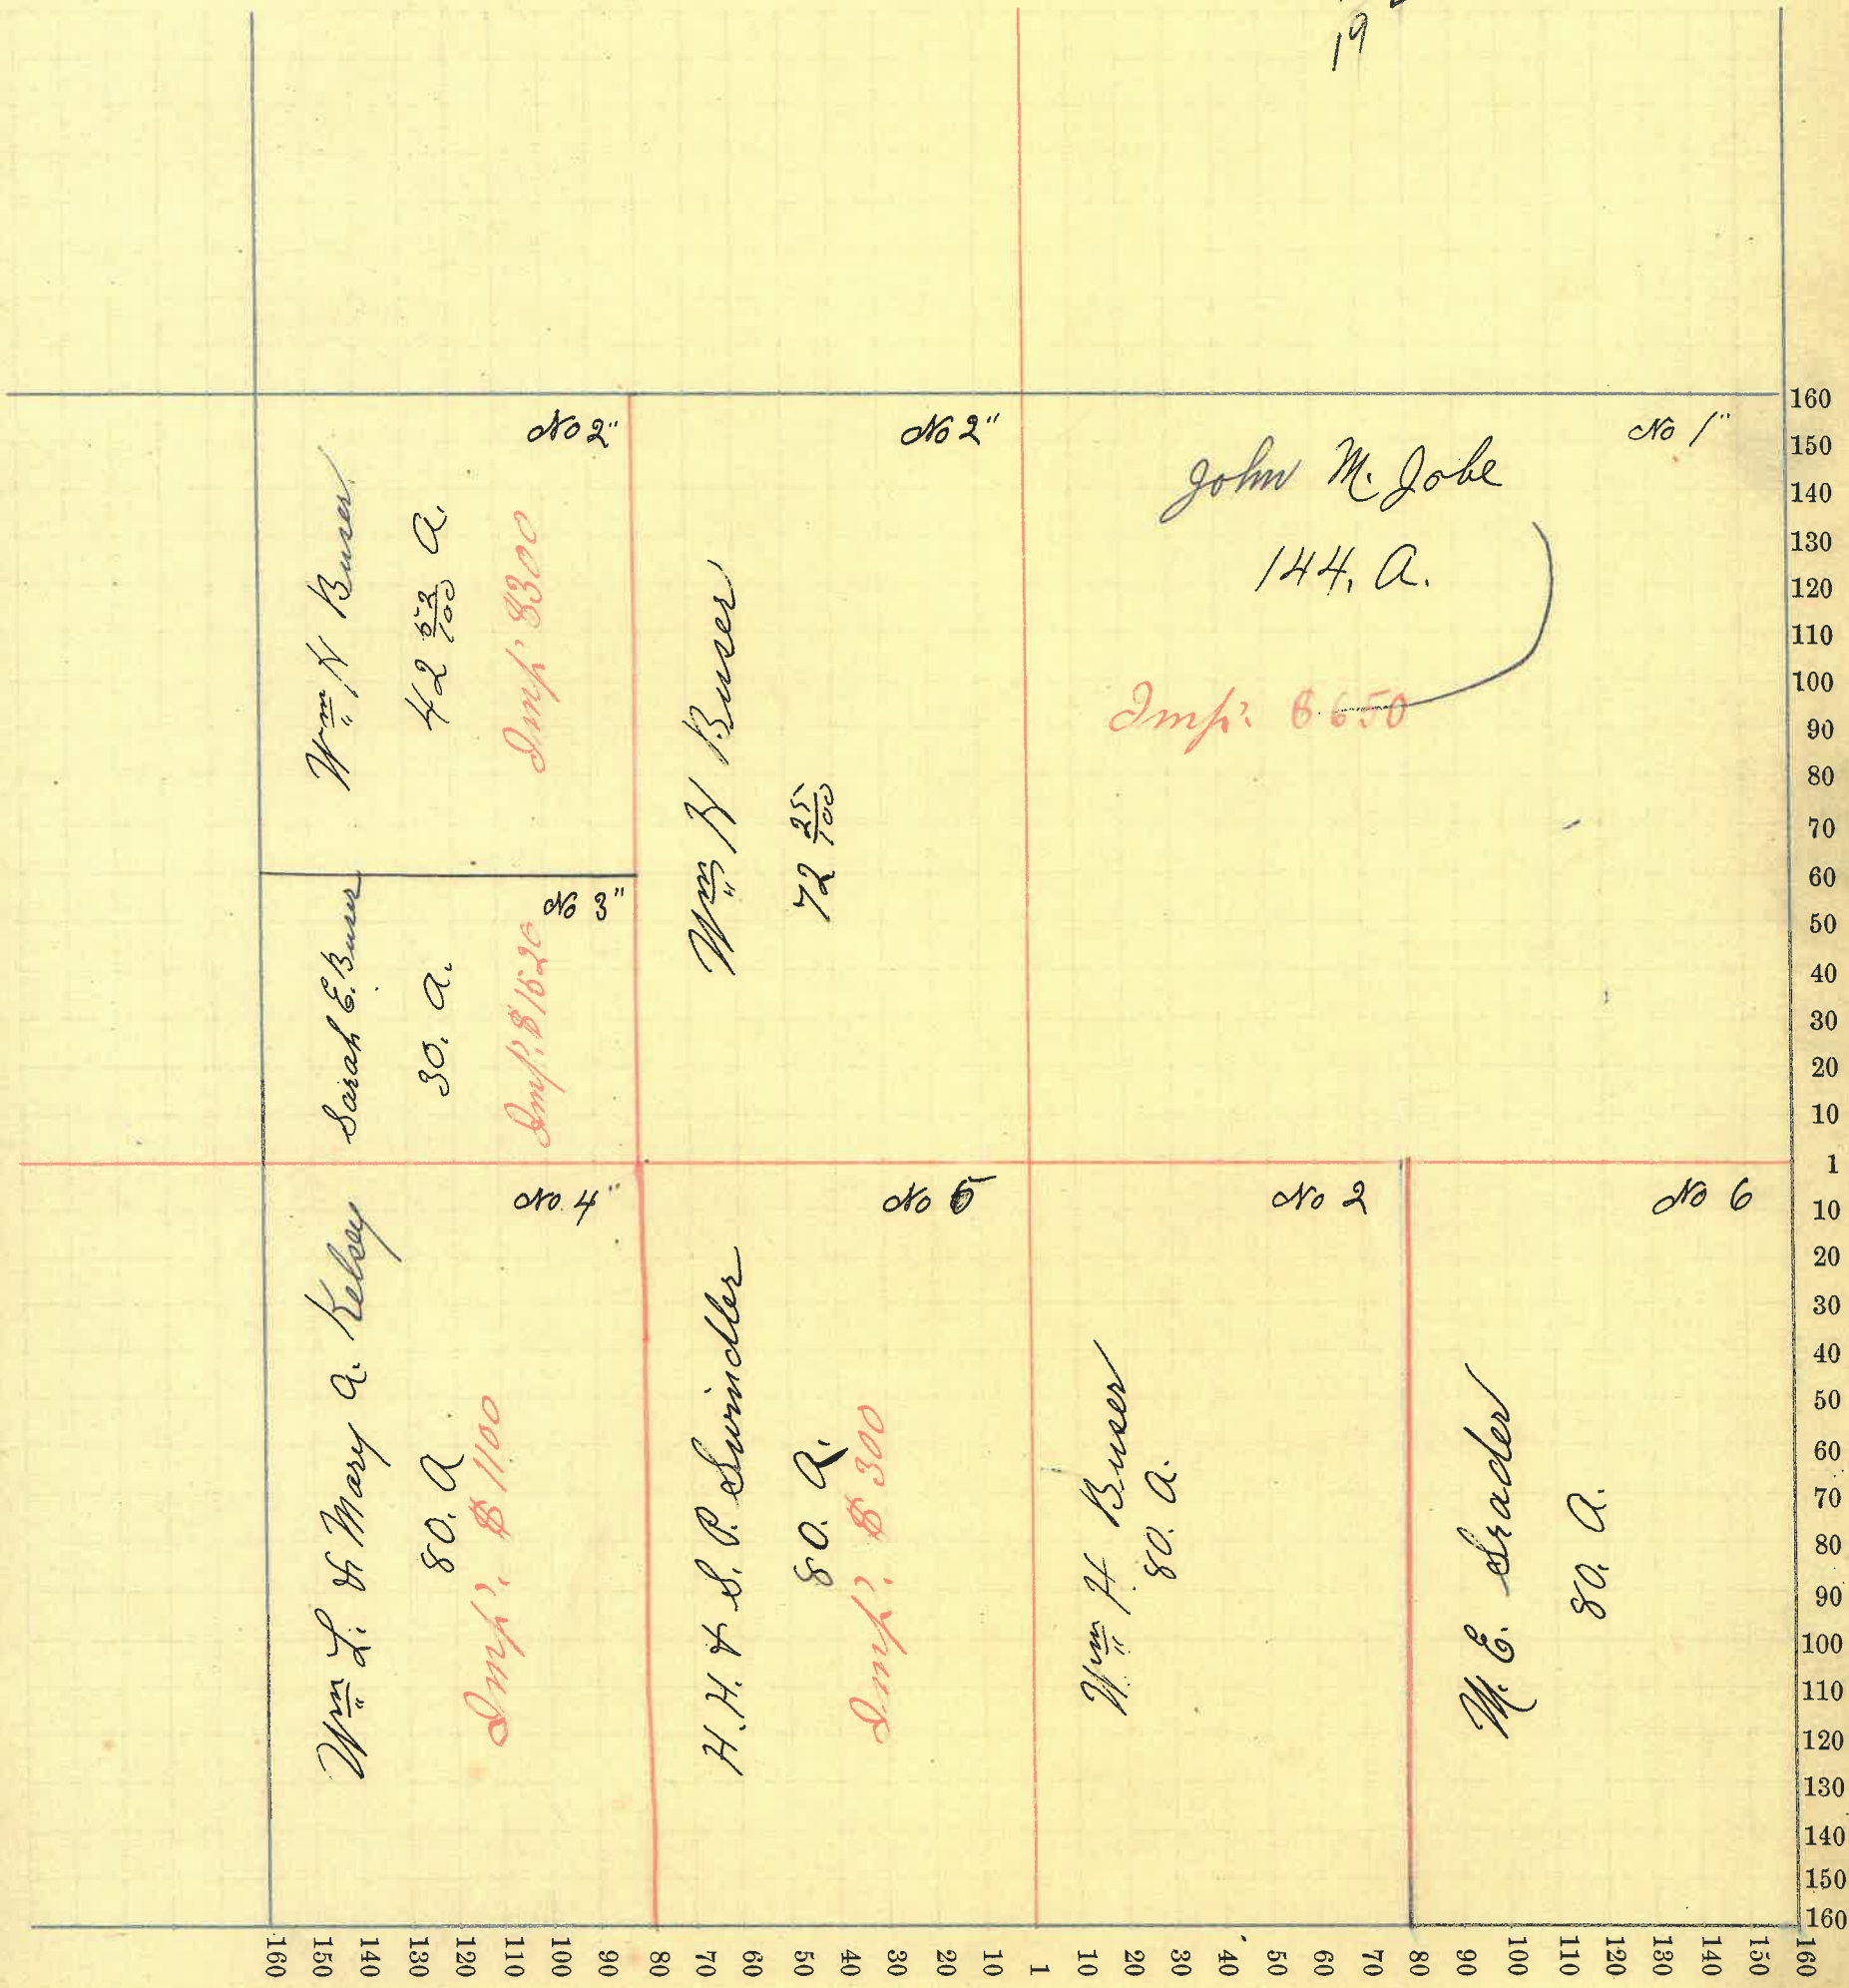 19
No 2"
Wm H Buser
42 52/100 A.
Imp. $300
No 2"
Wm H Buser
72 25/100
No 1"
John M. Jobe
144. A.
Imp. $650
No 3"
Sarah E. Buser
30. A.
Imp. $1520
No. 4"
Wm L. & Mary A. Kelsey
80. A
Imp. $1100
No 5
H.H. & S. P. Swindler
80. A.
Imp. $300
No 2
Wm H. Buser
80. A.
No 6
M. E. Srader
80. A.
160
150
140
130
120
110
100
90
80
70
60
50
40
30
20
10
1
10
20
30
40
50
60
70
80
90
100
110
120
130
140
150
160
160 150 140 130 120 110 100 90 80 70 60 50 40 30 20 10 1 10 20 30 40 50 60 70 80 90 100 110 120 130 140 150 160